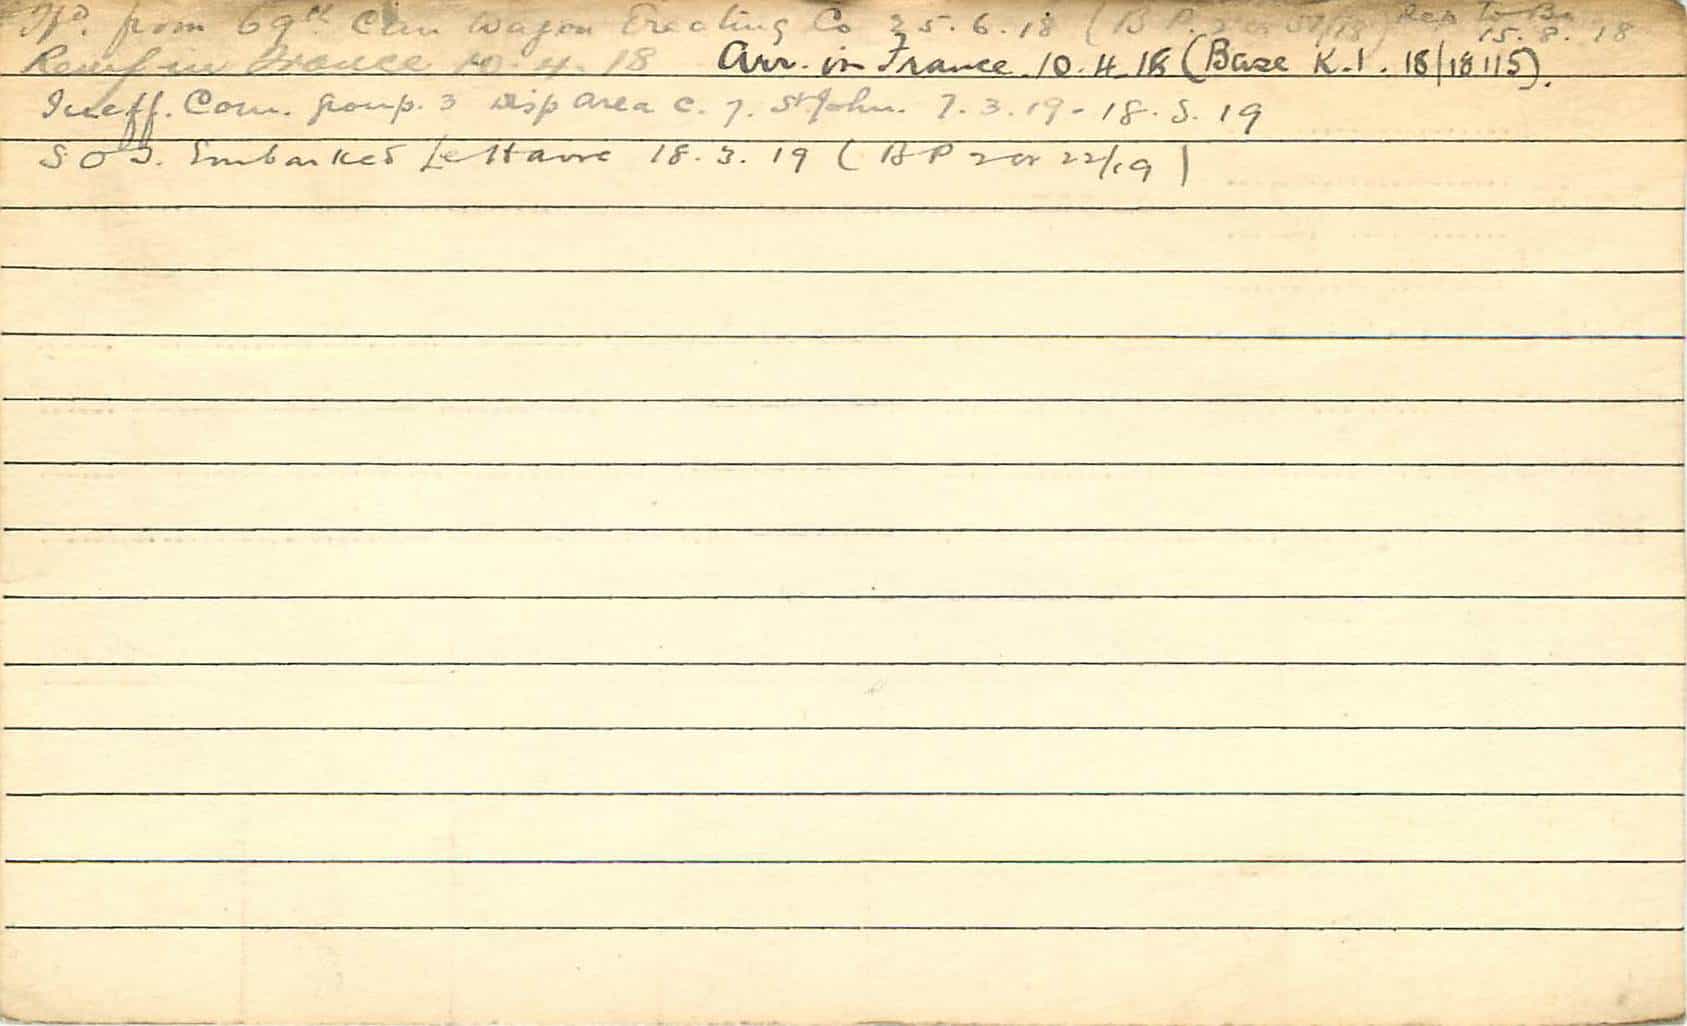 Tfd. from 69th Can Wagon Erecting Co 25.6.18 (B P. 2 or 51/18) Rep To Bn 15.8.18
Reinf in France 10.4.18 Arr. in France 10.4.18 (Base K.1. 18/18115).
Ineff. Com. group. 3 Disp area C. 7. St John. 7.3.19 - 18.3.19
S O S. Embarked Le Havre 18.3.19 (B P 2 or 22/19)